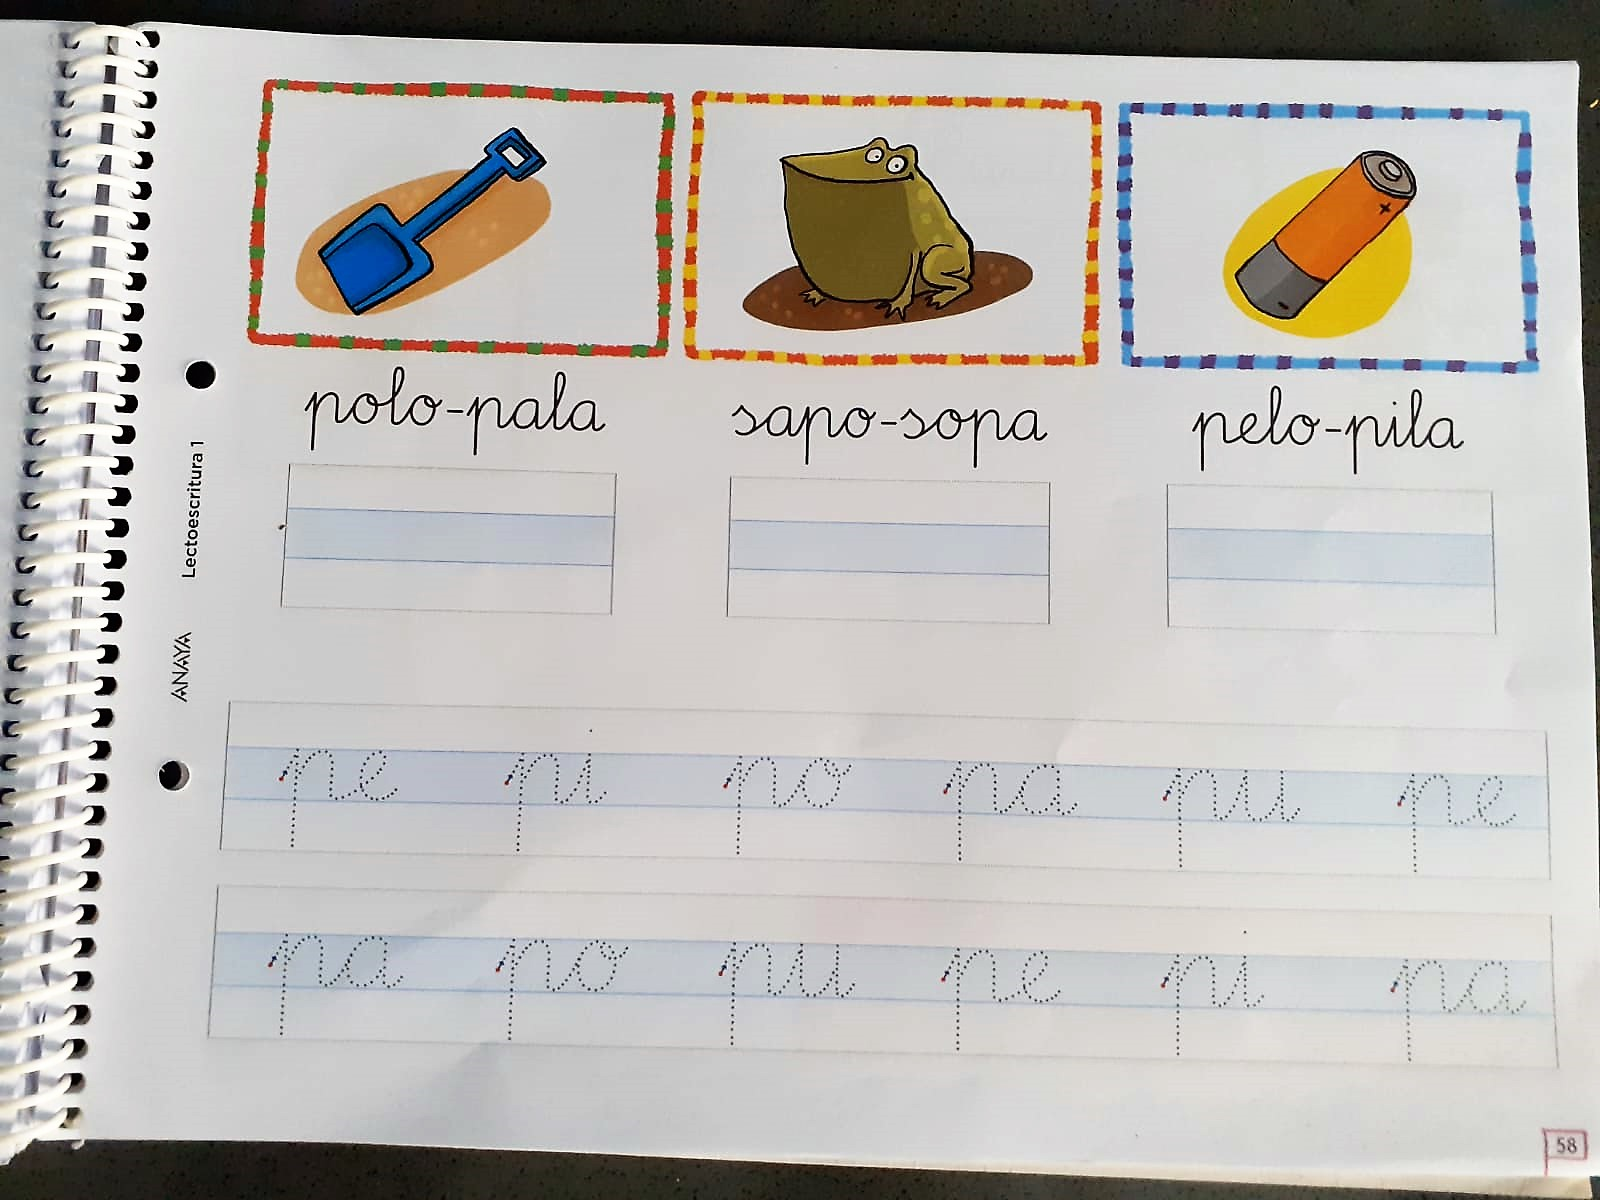 polo-pala
sapo-sopa
pelo-pila
Lectoescritura 1
ANAYA
pe pi po pa pu pe
pa po pu pe pi pa
58